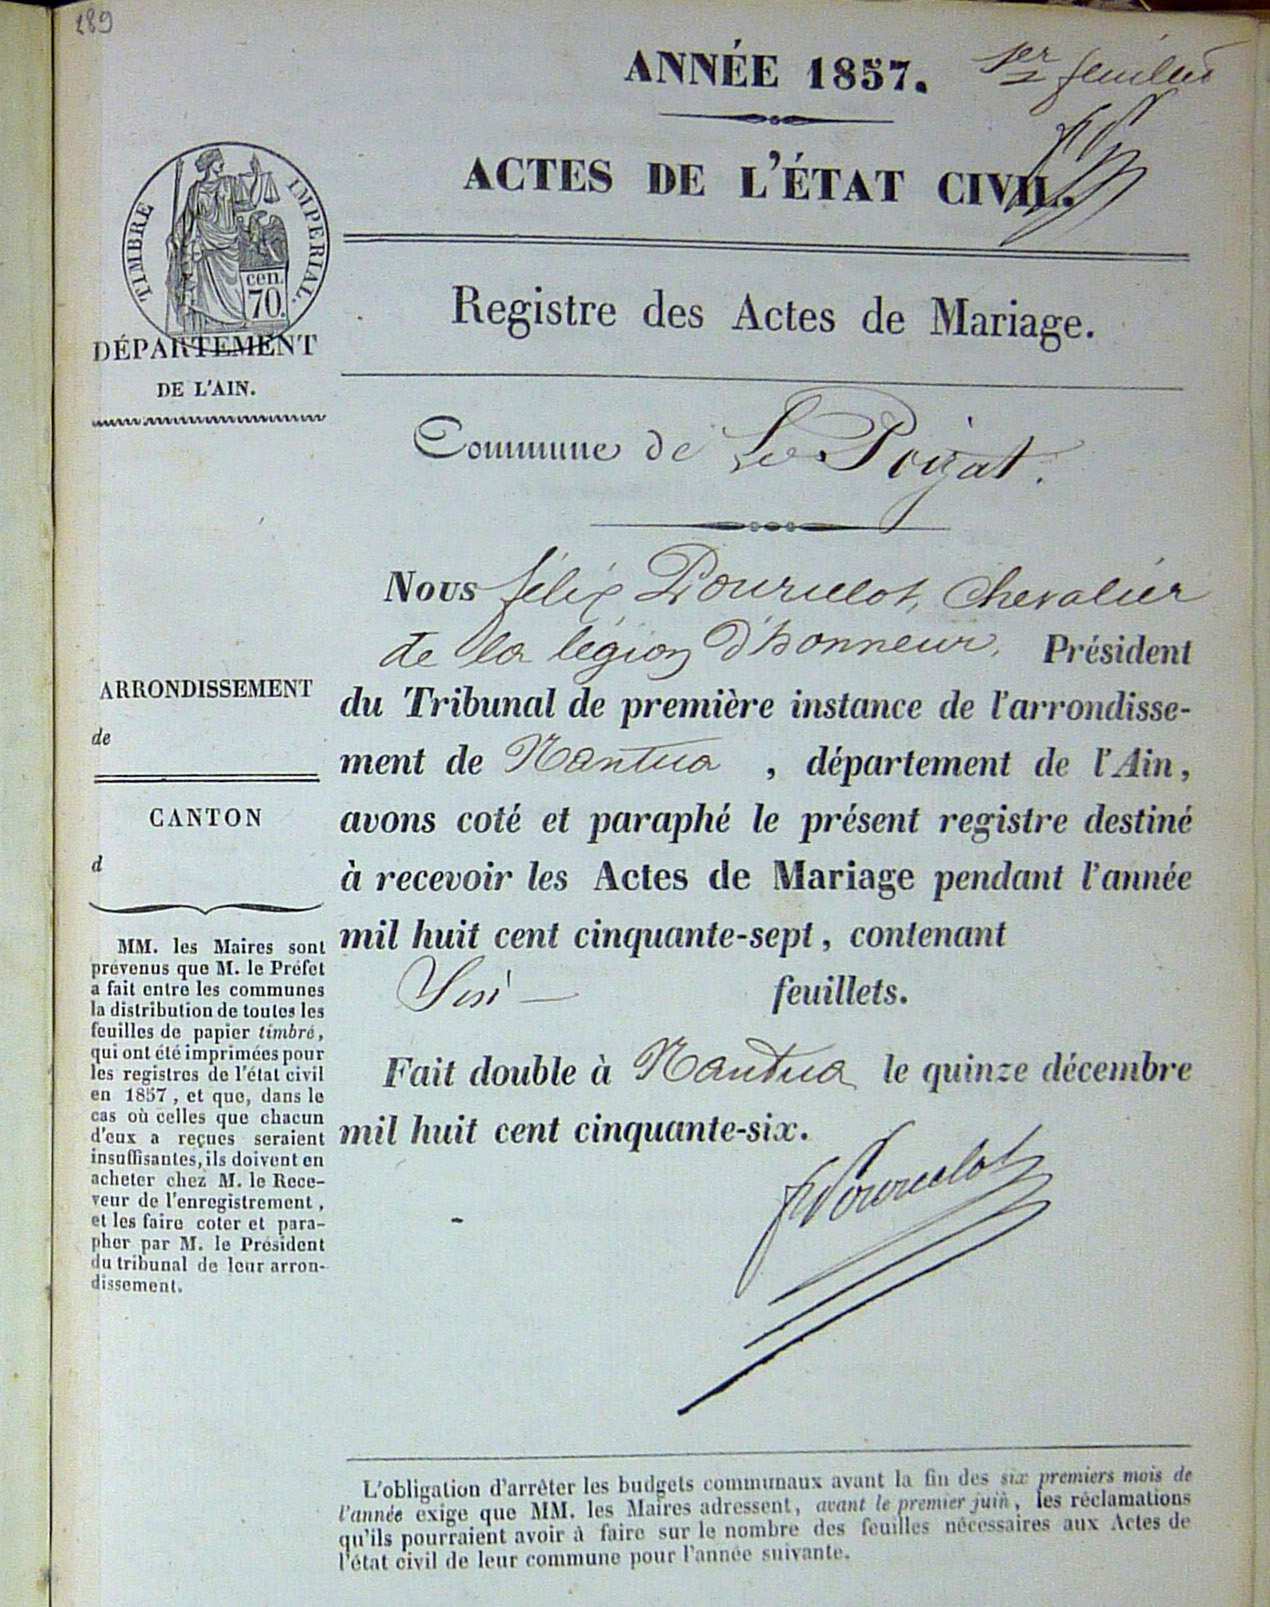 289
ANNÉE 1857.
1er feuillet
ACTES DE L'ÉTAT CIVIL.
TIMBRE IMPERIAL.
cen.
70.
DÉPARTEMENT
DE L'AIN.
Registre des Actes de Mariage.
Commune de Le Poizat.
Nous félix Pourcelot, Chevalier
de la légion d'honneur, Président
du Tribunal de première instance de l'arrondisse-
ment de Nantua, département de l'Ain,
avons coté et paraphé le présent registre destiné
à recevoir les Actes de Mariage pendant l'année
mil huit cent cinquante-sept, contenant
Six — feuillets.
Fait double à Nantua le quinze décembre
mil huit cent cinquante-six.
FPourcelot
ARRONDISSEMENT
de
CANTON
d
MM. les Maires sont
prévenus que M. le Préfet
a fait entre les communes
la distribution de toutes les
feuilles de papier timbré,
qui ont été imprimées pour
les registres de l'état civil
en 1857, et que, dans le
cas où celles que chacun
d'eux a reçues seraient
insuffisantes, ils doivent en
acheter chez M. le Rece-
veur de l'enregistrement,
et les faire coter et para-
pher par M. le Président
du tribunal de leur arron-
dissement.
L'obligation d'arrêter les budgets communaux avant la fin des six premiers mois de
l'année exige que MM. les Maires adressent, avant le premier juin, les réclamations
qu'ils pourraient avoir à faire sur le nombre des feuilles nécessaires aux Actes de
l'état civil de leur commune pour l'année suivante.